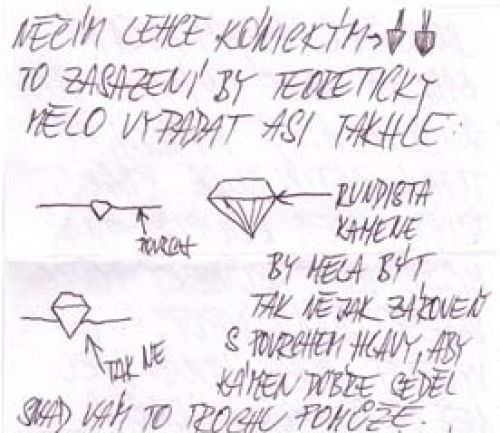 NĚČÍM LEHCE KÓNICKÝM→
TO ZASAZENÍ BY TEORETICKY
MĚLO VYPADAT ASI TAKHLE:
RUNDISTA
KAMENE
POVRCH
BY MĚLA BÝT
TAK NĚJAK ZÁROVEŇ
S POVRCHEM HLAVY, ABY
KÁMEN DOBŘE SEDĚL
TAK NE
SNAD VÁM TO TROCHU POMŮŽE.